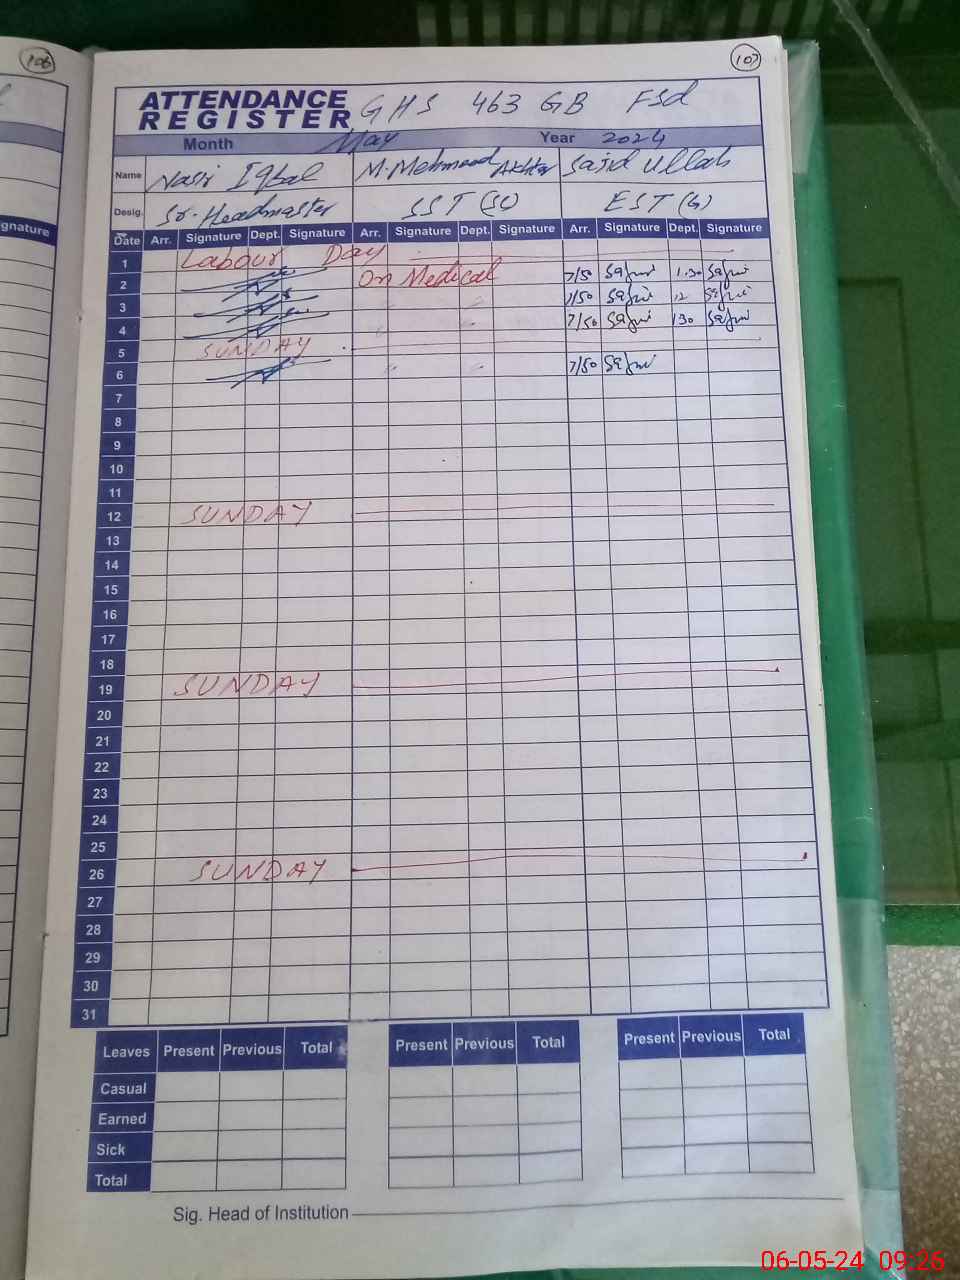 106
107
ATTENDANCE
REGISTER
GHS 463 GB Fsd
Month May Year 2024
Name Nasir Iqbal M. Mehmood Akhtar Sajid Ullah
Desig. Sr. Headmaster SST (SC) EST (G)
gnature
Date Arr. Signature Dept. Signature Arr. Signature Dept. Signature Arr. Signature Dept. Signature
1 Labour Day
2 On Medical 7/50 1.30
3 7/50 12
4 7/50 130
5 SUNDAY
6 7/50
7
8
9
10
11
12 SUNDAY
13
14
15
16
17
18
19 SUNDAY
20
21
22
23
24
25
26 SUNDAY
27
28
29
30
31
Leaves Present Previous Total Present Previous Total Present Previous Total
Casual
Earned
Sick
Total
Sig. Head of Institution
06-05-24 09:26